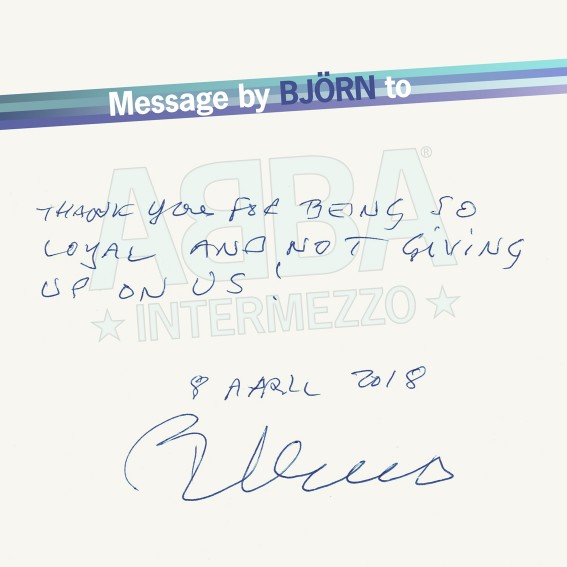 Message by BJÖRN to
ABBA®
THANK YOU FOR BEING SO
LOYAL AND NOT GIVING
UP ON US!
★ INTERMEZZO ★
8 APRIL 2018